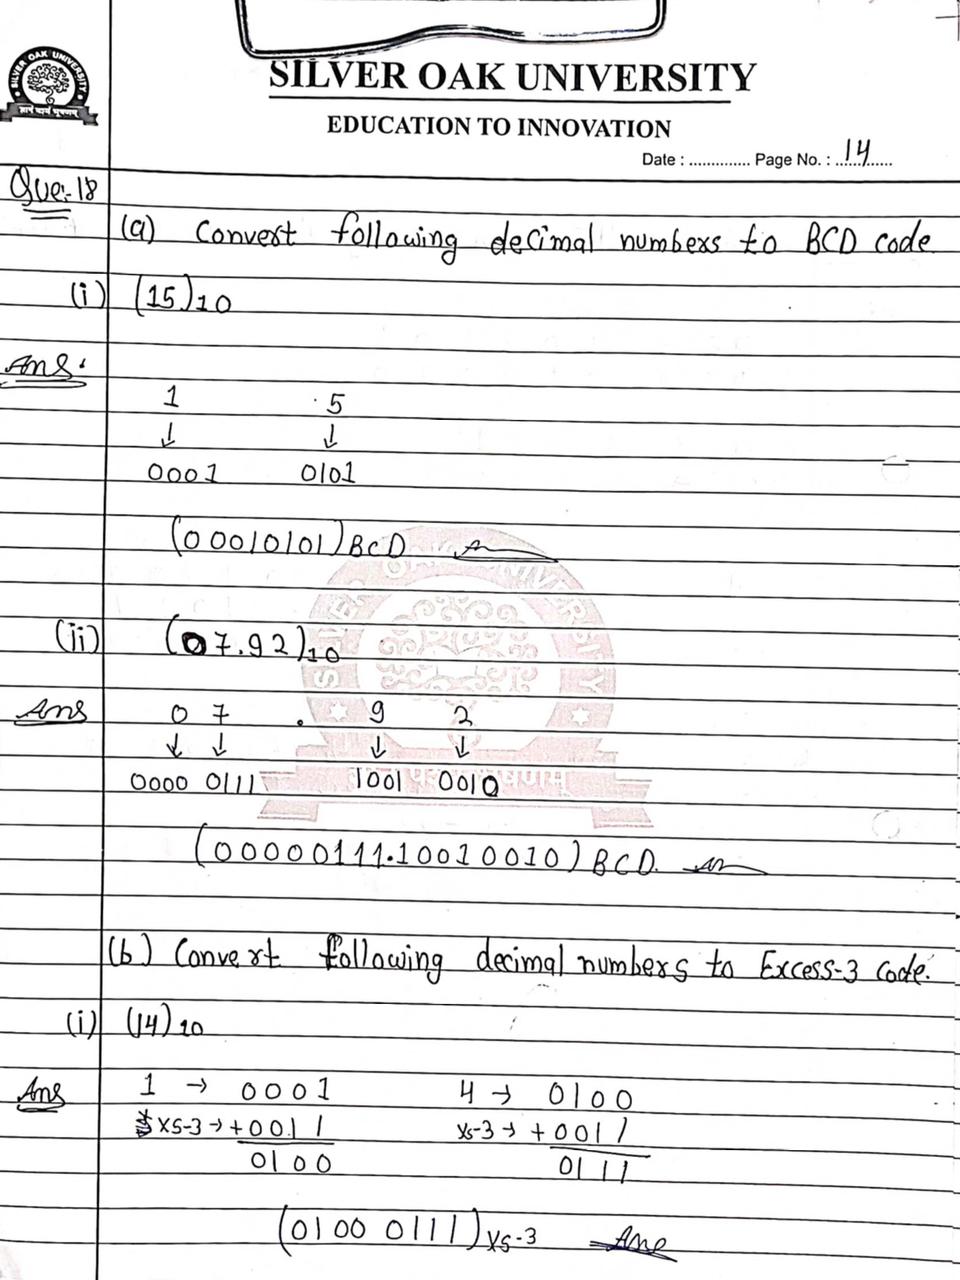 SILVER OAK UNIVERSITY
SILVER OAK UNIVERSITY
EDUCATION TO INNOVATION
Date : .............. Page No. : 14
Que:-18
(a) Convert following decimal numbers to BCD code
(i) (15)10
Ans:
1 5
↓ ↓
0001 0101
(00010101)BCD
(ii) (07.92)10
Ans 0 7 . 9 2
↓ ↓ ↓ ↓
0000 0111 1001 0010
(00000111.10010010)BCD.
(b) Convert following decimal numbers to Excess-3 code.
(i) (14)10
Ans 1 → 0001 4 → 0100
XS-3 → +0011 XS-3 → +0011
0100 0111
(0100 0111)XS-3 Ans